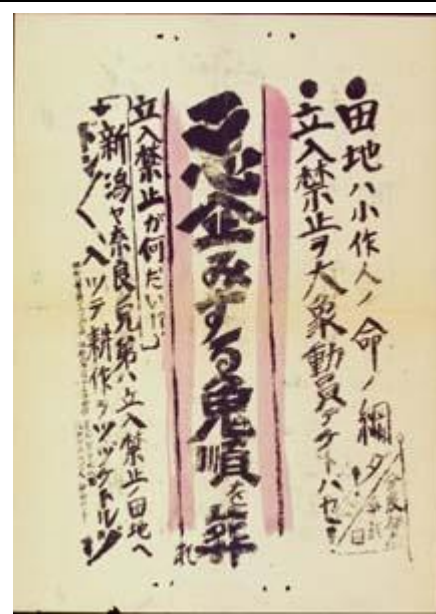 田地ハ小作人ノ命ノ綱ダ
立入禁止ヲ大衆動員デブチトバセ!
悪企みする鬼順を葬れ
立入禁止が何だい!?」
「新潟ヤ奈良ノ兄弟ハ立入禁止ノ田地ヘ
ドン〱入ツテ耕作シツヅケトルゾ